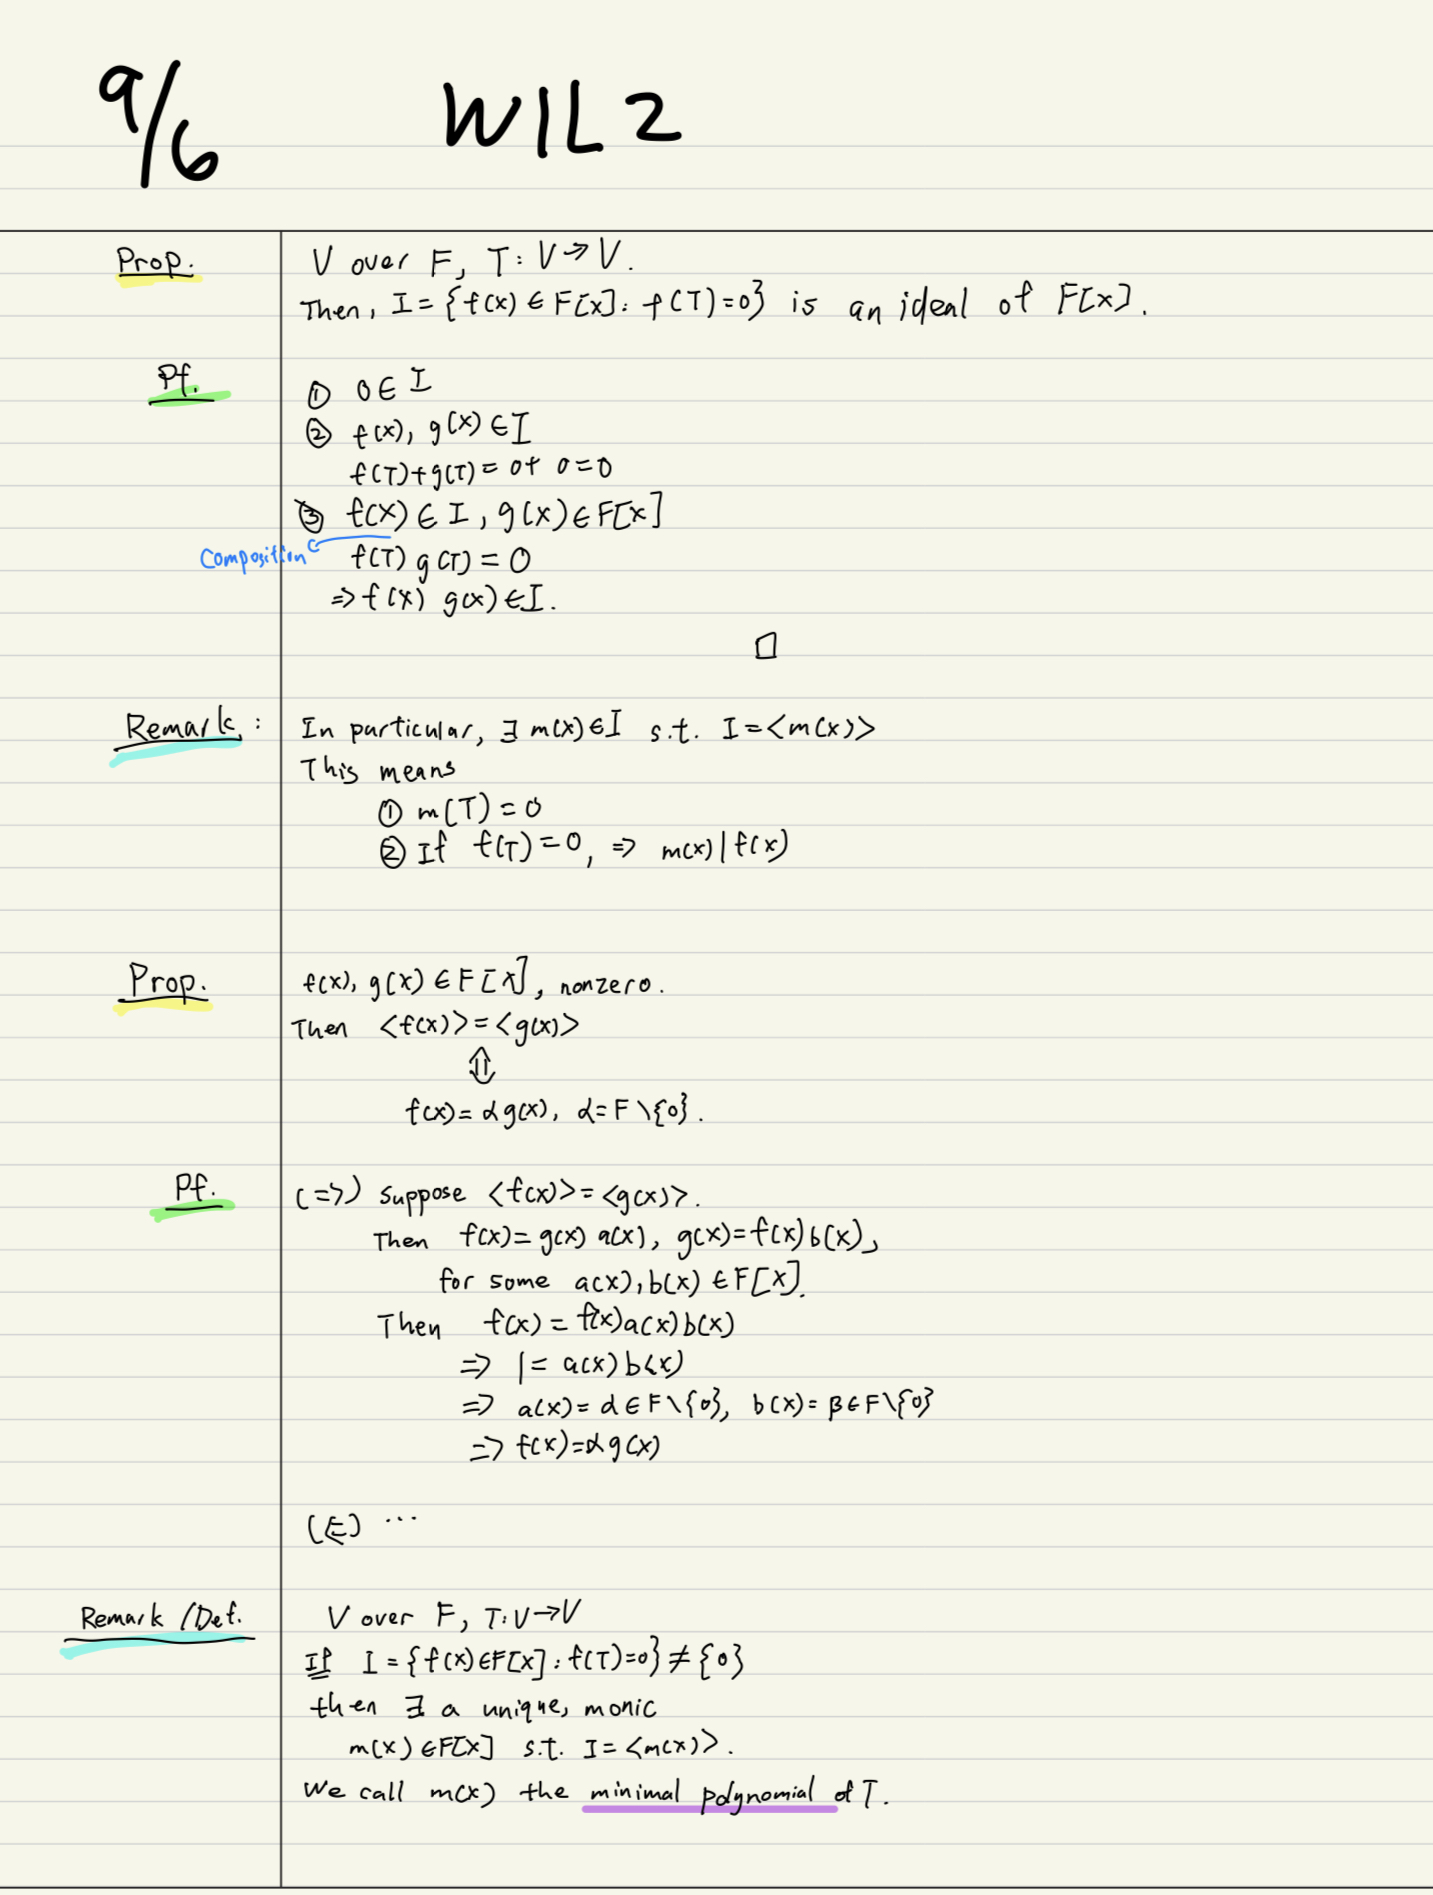 9/6 W1L2
Prop. V over F, T: V → V.
Then, I = {f(x) ∈ F[x]: f(T)=0} is an ideal of F[x].
Pf. ① 0 ∈ I
② f(x), g(x) ∈ I
f(T)+g(T) = 0+ 0=0
③ f(x) ∈ I, g(x) ∈ F[x]
Composition f(T) g(T) = 0
⇒ f(x) g(x) ∈ I.
□
Remark: In particular, ∃ m(x) ∈ I s.t. I = <m(x)>
This means
① m(T) = 0
② If f(T) = 0, ⇒ m(x) | f(x)
Prop. f(x), g(x) ∈ F[x], nonzero.
Then <f(x)> = <g(x)>
⇕
f(x) = αg(x), α= F \ {0}.
Pf. (=>) Suppose <f(x)> = <g(x)>.
Then f(x) = g(x) a(x), g(x) = f(x) b(x),
for some a(x), b(x) ∈ F[x].
Then f(x) = f(x)a(x)b(x)
⇒ 1 = a(x) b(x)
⇒ a(x) = α ∈ F \ {0}, b(x) = β ∈ F \ {0}
⇒ f(x) = αg(x)
(⇐) ...
Remark /Def. V over F, T: V → V
If I = {f(x) ∈ F[x] : f(T)=0} ≠ {0}
then ∃ a unique, monic
m(x) ∈ F[x] s.t. I = <m(x)>.
We call m(x) the minimal polynomial of T.